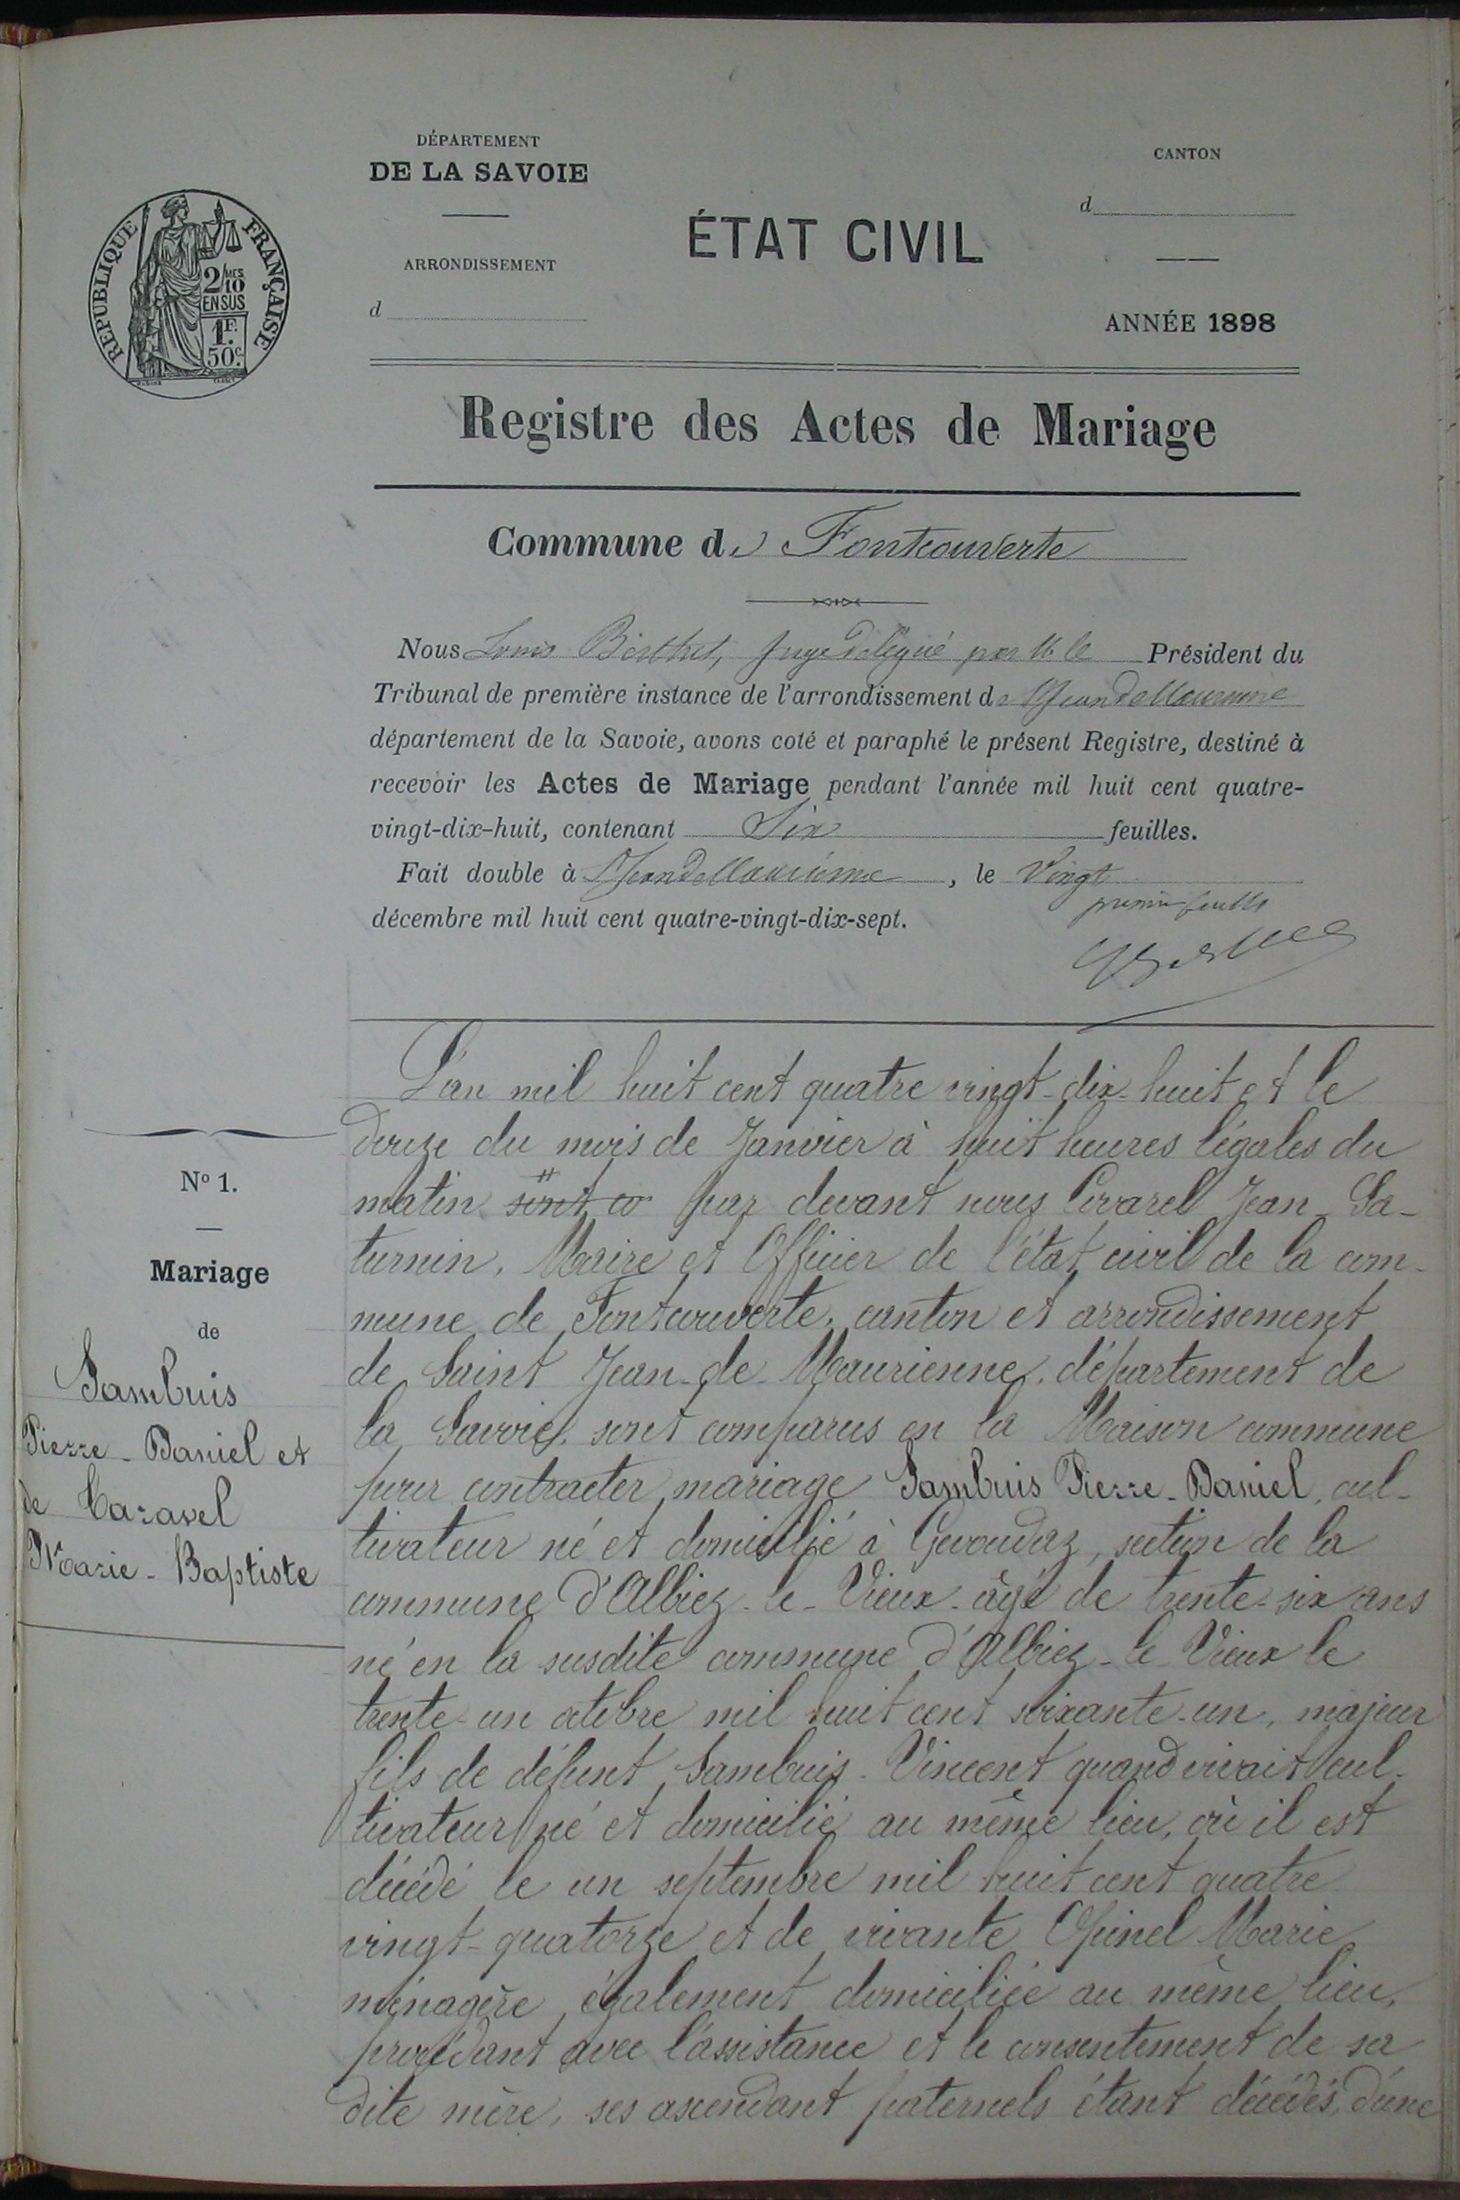 DÉPARTEMENT
DE LA SAVOIE
ARRONDISSEMENT
d
RÉPUBLIQUE FRANÇAISE
2/MES 10
EN SUS
1F.
50c.
ÉTAT CIVIL
CANTON
d
ANNÉE 1898
Registre des Actes de Mariage
Commune de Fontcouverte
Nous Louis Berthet, Juge délégué par M. le Président du
Tribunal de première instance de l'arrondissement de St Jean de Maurienne
département de la Savoie, avons coté et paraphé le présent Registre, destiné à
recevoir les Actes de Mariage pendant l'année mil huit cent quatre-
vingt-dix-huit, contenant Six feuilles.
Fait double à St Jean de Maurienne, le Vingt
décembre mil huit cent quatre-vingt-dix-sept.
premier feuille
No 1.
Mariage
de
Sambuis
Pierre-Daniel et
de Taravel
Marie-Baptiste
L'an mil huit cent quatre vingt-dix-huit et le
douze du mois de Janvier à huit heures légales du
matin sont co par devant nous Covarel Jean-Sa-
turnin, Maire et Officier de l'état civil de la com-
mune de Fontcouverte, canton et arrondissement
de Saint Jean-de-Maurienne, département de
la Savoie, sont comparus en la Maison commune
pour contracter mariage Sambuis Pierre-Daniel, cul-
tivateur né et domicilié à Gevoudaz, section de la
commune d'Albiez-le-Vieux âgé de trente-six ans
né en la susdite commune d'Albiez-le-Vieux le
trente-un octobre mil huit cent soixante-un, majeur
fils de défunt Sambuis Vincent quand vivait cul-
tivateur né et domicilié au même lieu, où il est
décédé le un septembre mil huit cent quatre
vingt-quatorze et de vivante Opinel Marie
ménagère également domiciliée au même lieu,
procédant avec l'assistance et le consentement de sa
dite mère, ses ascendant paternels étant décédés, d'une